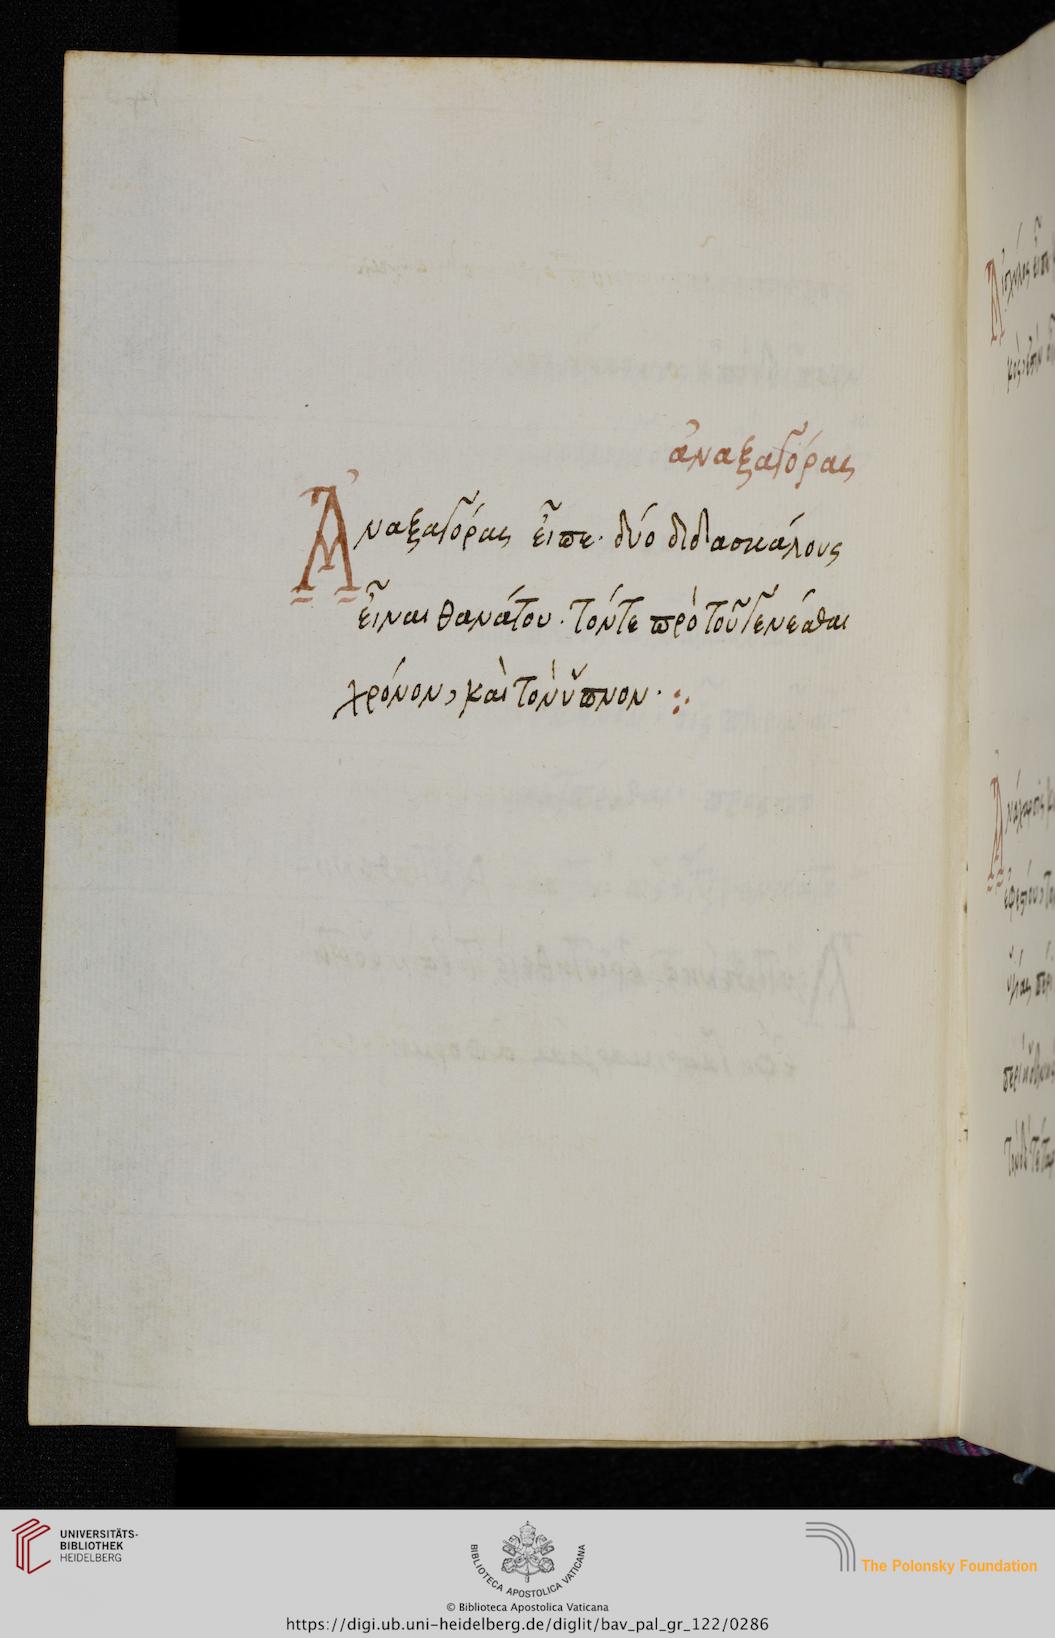 ἀναξαγόρας
Ἀναξαγόρας εἶπε· δύο διδασκάλους
εἶναι θανάτου· τόντε πρὸ τοῦ γενέσθαι
χρόνον, καὶ τὸν ὕπνον·
UNIVERSITÄTS-
BIBLIOTHEK
HEIDELBERG
BIBLIOTECA APOSTOLICA VATICANA
The Polonsky Foundation
© Biblioteca Apostolica Vaticana
https://digi.ub.uni-heidelberg.de/diglit/bav_pal_gr_122/0286